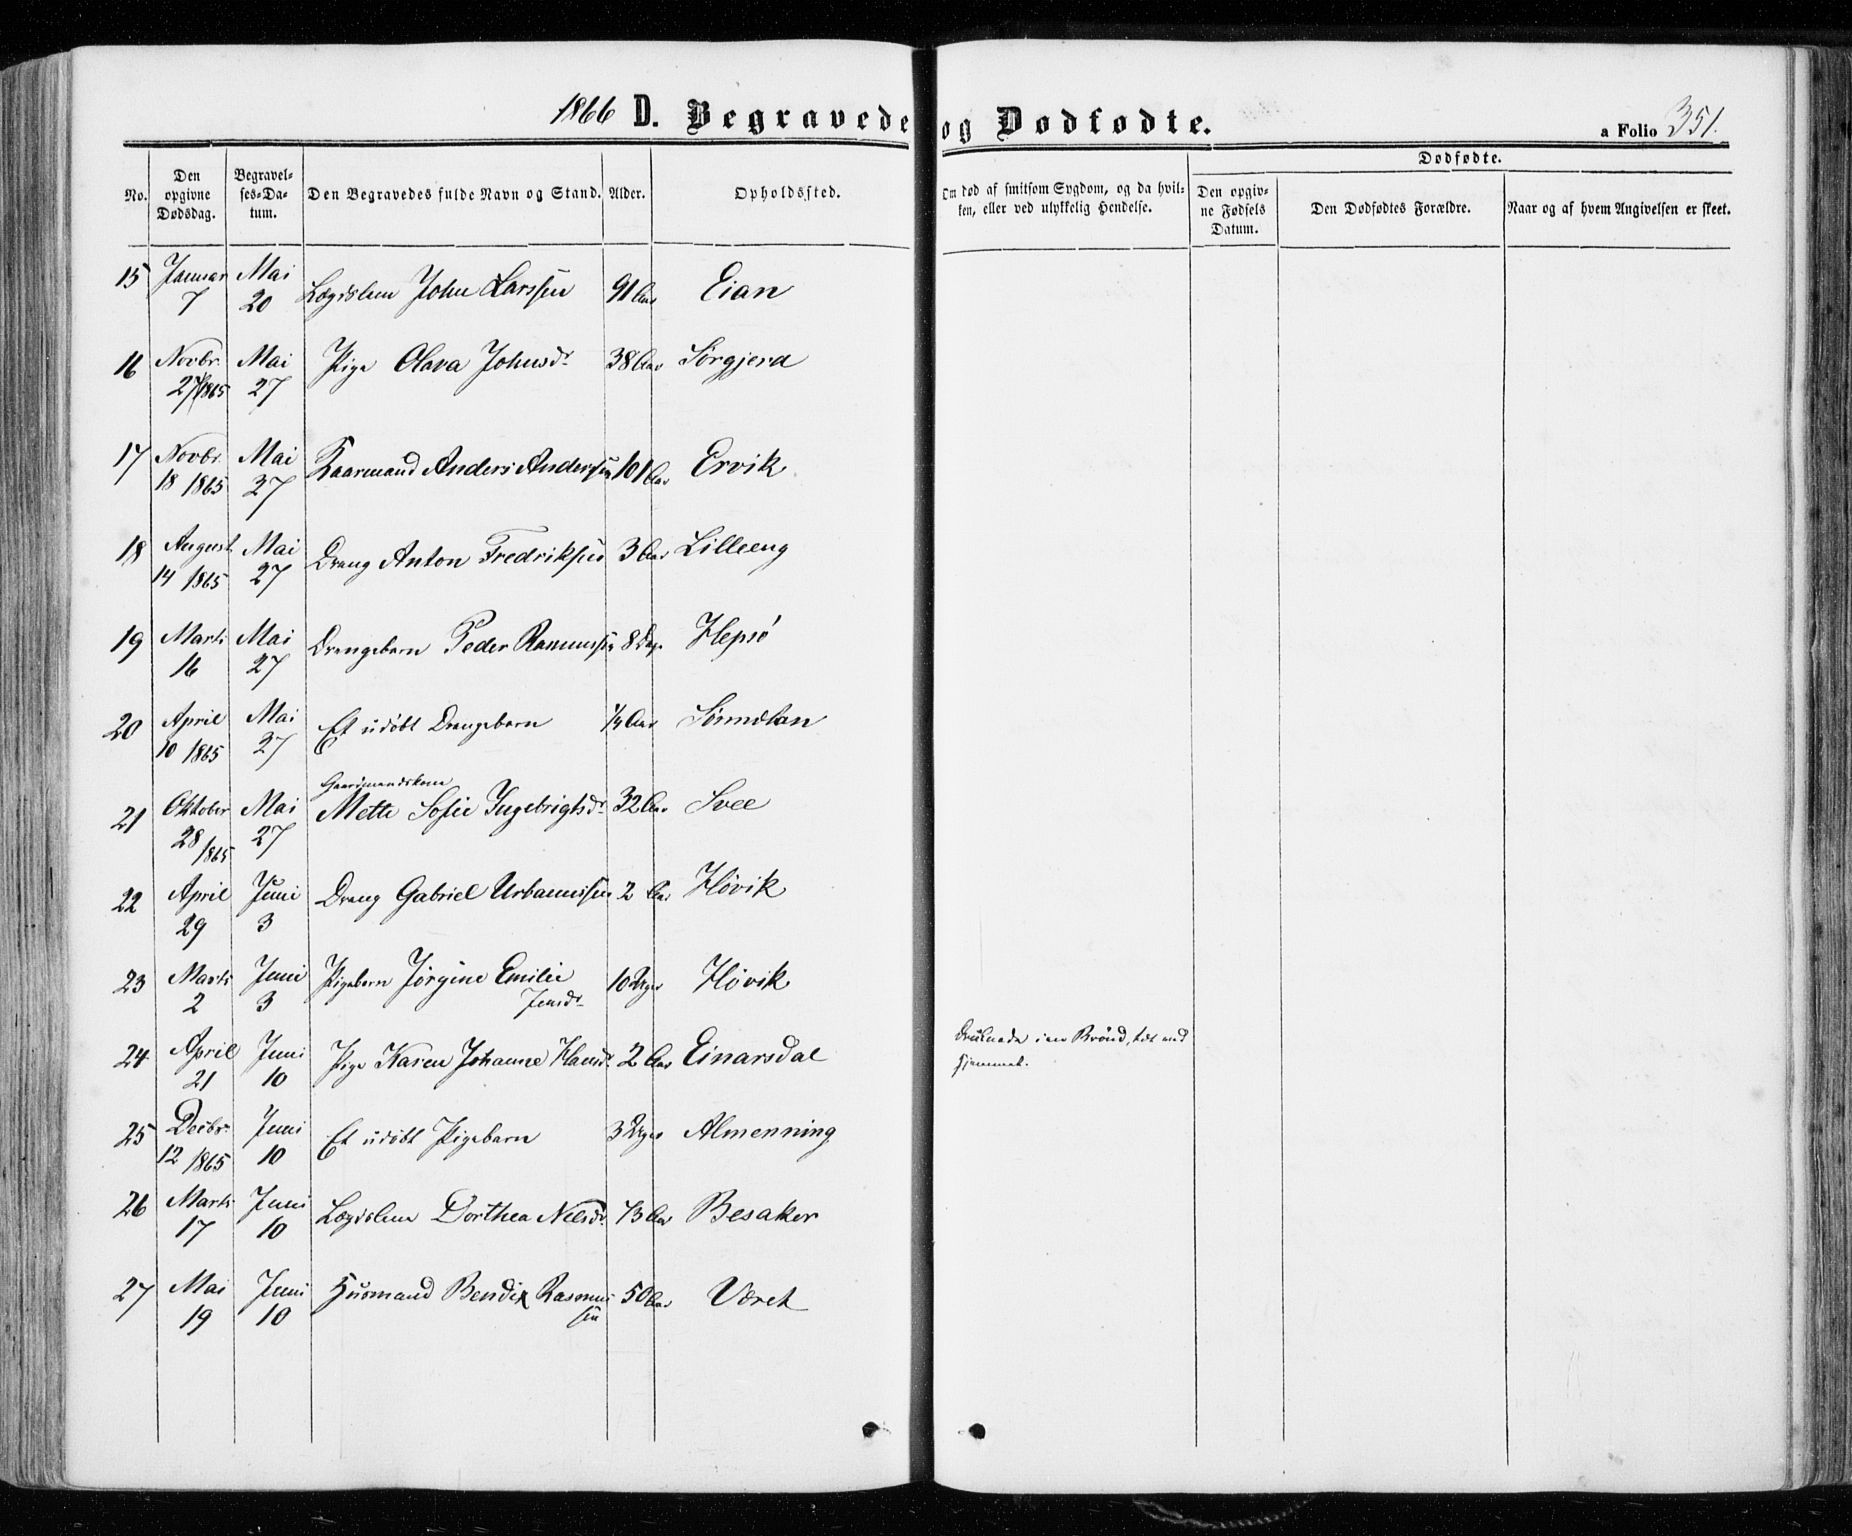 1866 D. Begravede og Dødfødte. a Folio 351.
No. Den opgivne Dødsdag. Begravelses-Datum. Den Begravedes fulde Navn og Stand. Alder. Opholdssted. Om død af smitsom Sygdom, og da hvilken, eller ved ulykkelig Hendelse. Dødfødte. Den opgivne Fødsels Datum. Den Dødfødtes Forældre. Naar og af hvem Angivelsen er skeet.
15 Januar 7 Mai 20 Lægdslem John Larssen 91 Aar Eian
16 Novbr. 27 1865 Mai 27 Pige Olava Johnsdr 38 Aar Sørgjerd
17 Novbr. 18 1865 Mai 27 Kaarmand Anders Anderssen 101 Aar Ervik
18 August 14 1865 Mai 27 Dreng Anton Fredriksen 3 Aar Lilleeng
19 Marts 16 Mai 27 Drengebarn Peder Rasmussen 8 Dage Hepsø
20 April 10 1865 Mai 27 Et udøbt Drengebarn ¼ Aar
21 Oktober 28 1865 Mai 27 Gaardmandskone Mette Sofie Ingebrigtsdr 32 Aar Svee
22 April 29 Juni 3 Dreng Gabriel Urbanussen 2 Aar Høvik
23 Marts 2 Juni 3 Pigebarn Jørgine Emilie Jensdr 10 Uger Høvik
24 April 21 Juni 10 Pige Karen Johanne Hansdr 2 Aar Einarsdal Druknede i en Brønd, tæt ved Hjemmet.
25 Decbr. 12 1865 Juni 10 Et udøbt Pigebarn 3 Uger Almenning
26 Marts 17 Juni 10 Lægdslem Dorthea Nilsdr 73 Aar Besaker
27 Mai 19 Juni 10 Husmand Bendix Rasmussen 50 Aar Været